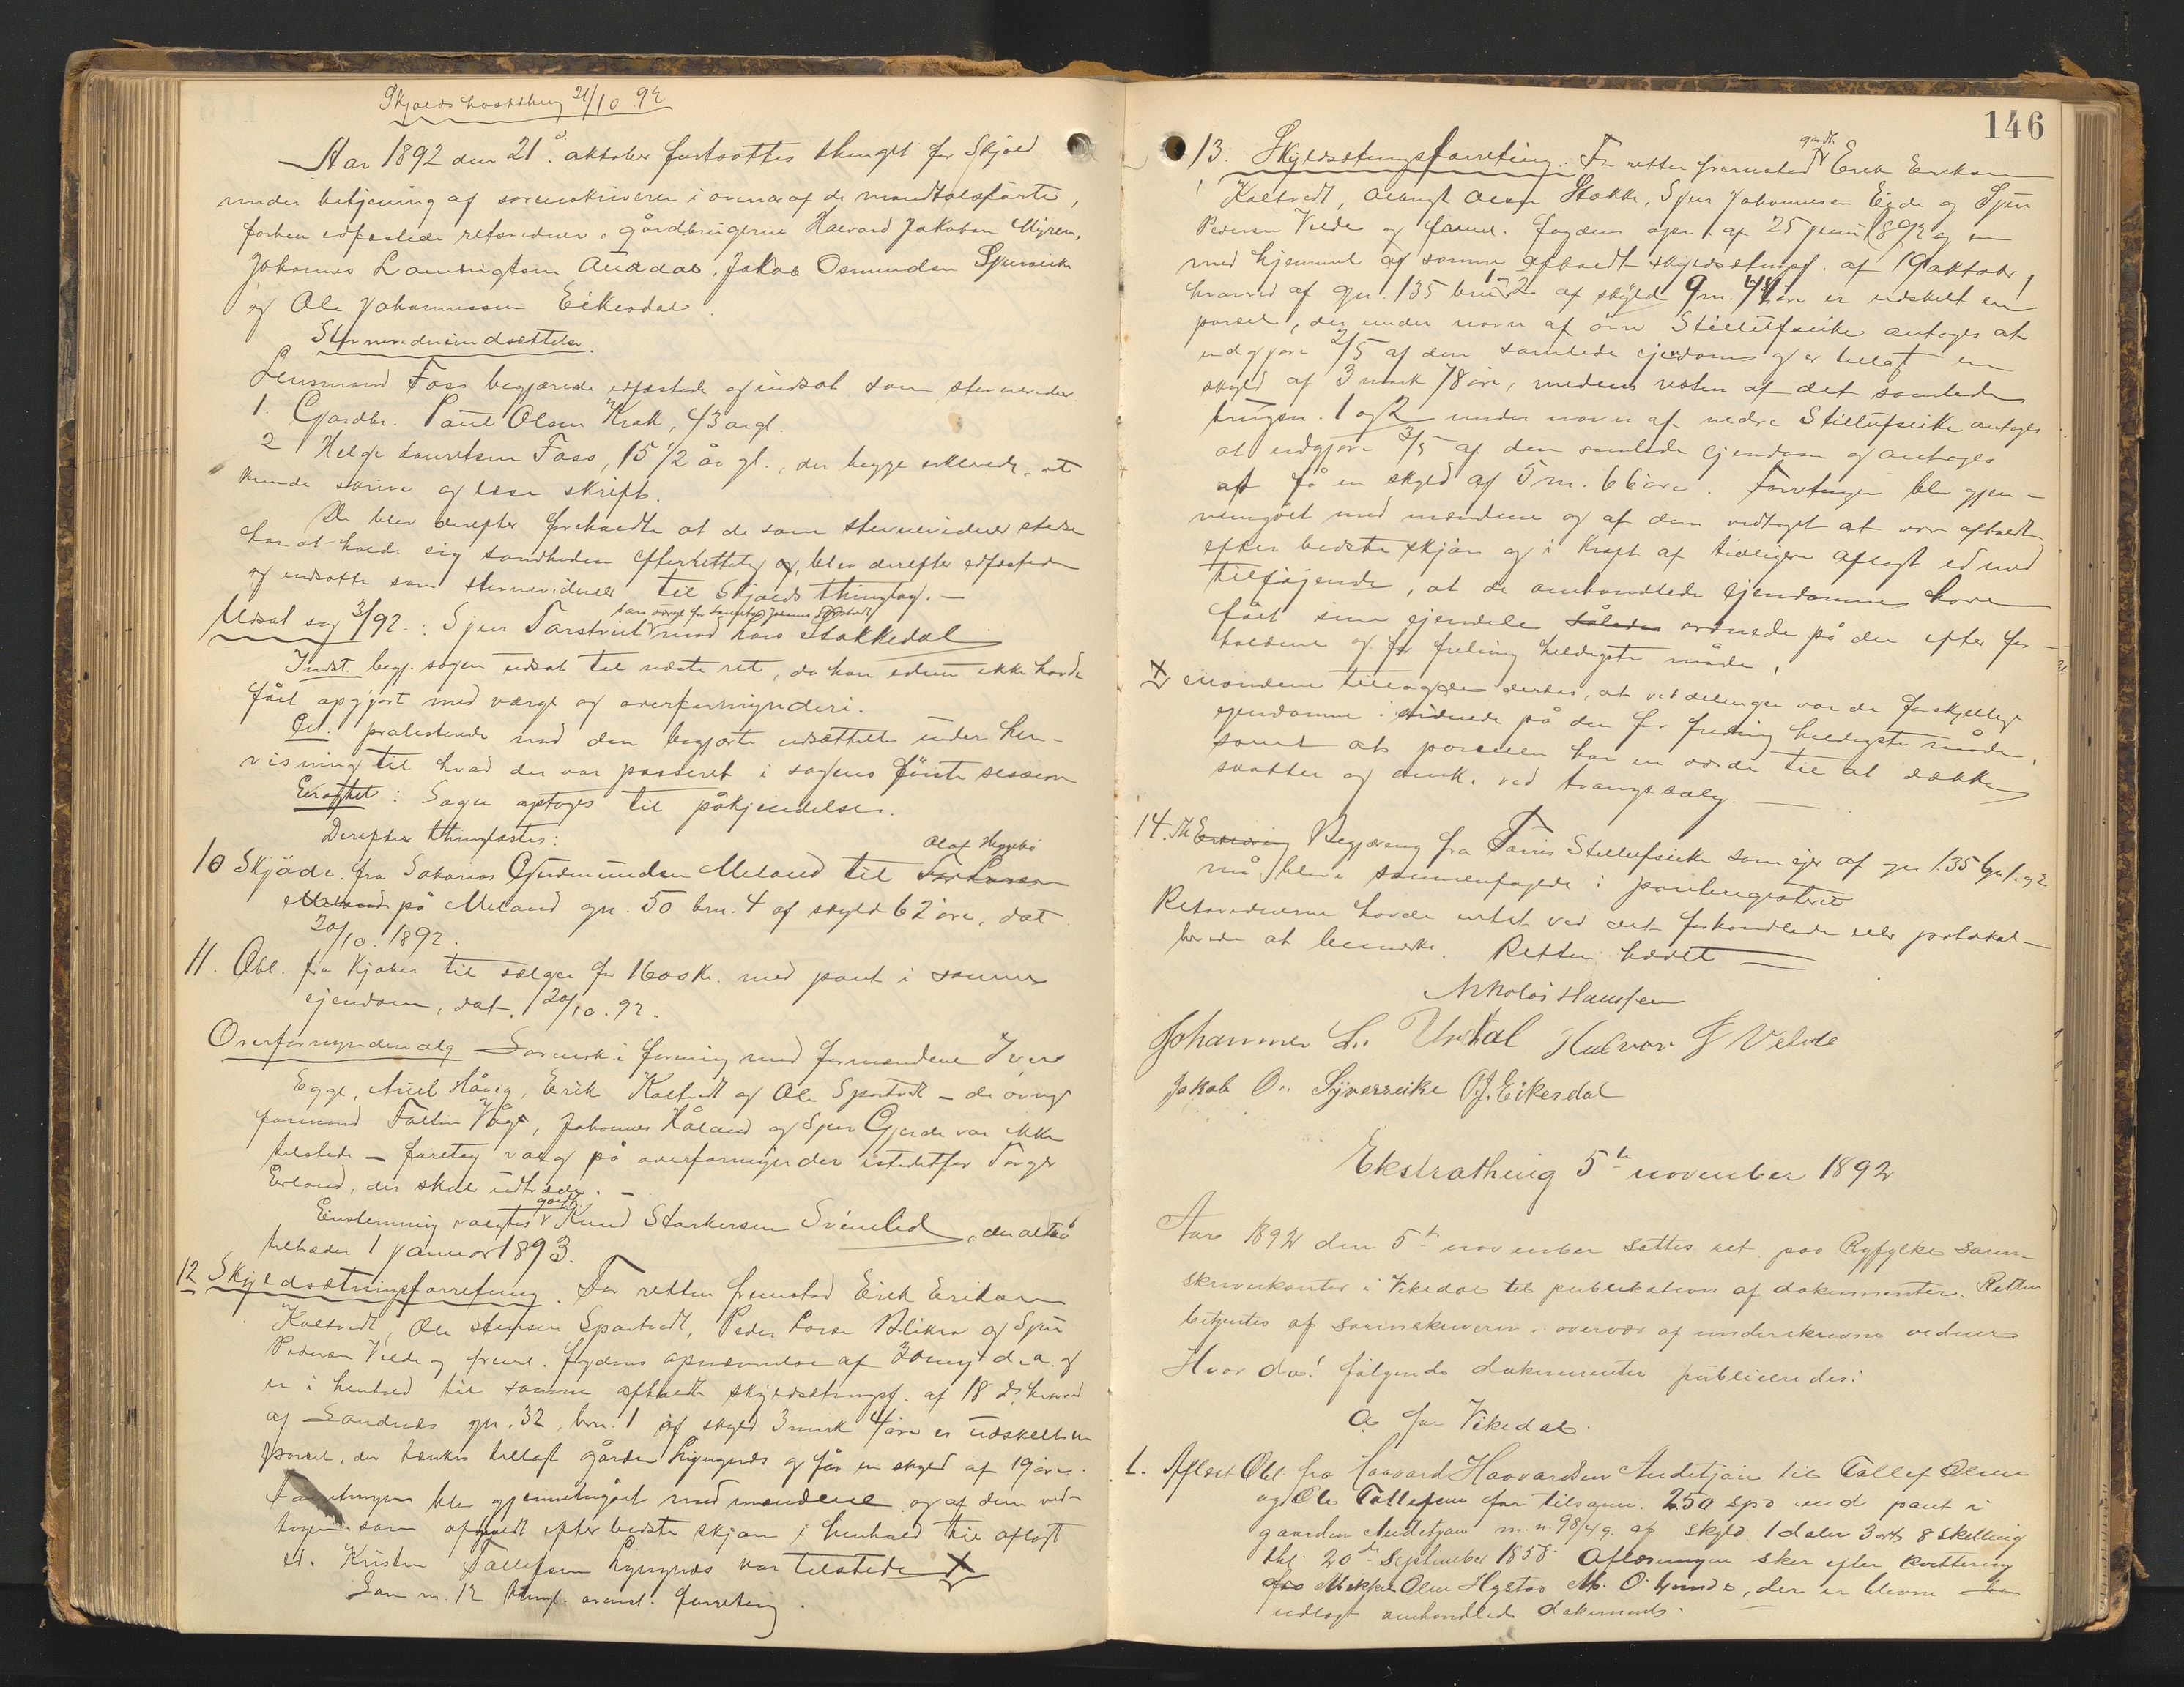 Skjolds høstthing 21/10 92
Aar 1892 den 21de oktober fortsattes thinget for Skjold
under betjening af sorenskriveren i overvær af de mandtalsførte,
forhen edfæstede retsvidner, gårdbrugerne Halvard Jakobsen Myren,
Johannes Lambrigtsen Aurdal, Jakob Osmundsen
og Ole Johannessen Eikesdal
Stevnevidneindsættelse.
Lensmand Foss begjærede edfæstede og indsat som stevnevidner
1. Gårdbr. Paul Olsen Krak, 43 år gl.
2 Helge Lauritsen Foss, 15 1/2 år gl., der begge erklærede, at
kunde skrive og læse skrift.
De blev derefter foreholdte at de som stevnevidner stedse
har at holde sig sandheden efterrettelig og blev derefter edfæstede
og indsatte som stevnevidner til Skjolds thinglag. —
Udsat sag 3/92.: Sjur Tarstveit mod Lars Stakkedal
Indst. begj. sagen udsat til næste ret, da han endnu ikke havde
fået opgjort med værge og overformynderi.
Cit. protesterede mod den begjærte udsættelse under hen-
visning til hvad der var passeret i sagens første session
Eragtet: Sagen optages til påkjendelse.
Derefter thinglæstes:
Olaf Heggebø
10 Skjøde fra Sakarias Gudmundsen Meland til
Meland på Meland gn. 50 brn. 4 af skyld 62 øre, dat
20/10. 1892.
11. Obl. fra kjøber til sælger for 1600 Kr. med pant i samme
ejendom, dat. 20/10. 92.
Overformyndervalg Sorensk. i forening med formændene Iver
Egge, Håvig, Erik Kaltvedt og Ole Sportvedt — de øvrige
formænd Vågs, Johannes Håland og Sjur Gjerde var ikke
tilstede — foretog valg på overformynder istedetfor Torger
Erland, der skal udtræde. —
gårdbr.
Einstemmig valgtes Knud Størkersen Svinelid, der altså
tiltræder 1 januar 1893.
12 Skyldsætningsforretning. For retten fremstod Erik Eriksen
Kaltvedt, Ole Steinsen Sportvedt, Peder Larsen Blikra og Sjur
Pedersen Velde og freml. fogdens opnævnelse af 30 maj d. a. og
en i henhold til samme afholdt skyldsætningsf. af 18 ds. hvorved
af Sandnes gn. 32, brn. 1 af skyld 3 mark 4 øre er udskilt en
parsel, der tænkes tillagt gården Lyngnes og får en skyld af 19 øre.
Forretningen blev gjennemgået med mændene og af dem ved-
tagen som afholdt efter bedste skjøn i henhold til aflagt
ed. Kristen Tallefsen Lyngnes var tilstede X
Som n. 12 thingl. ovenst. forretning.
146
13. Skyldsætningsforretning. For retten fremstod gårdbr. Erik Eriksen
Kaltvedt, Stakke, Sjur Johannessen Eide og Sjur
Pedersen Velde og freml. fogdens opn. af 25 juni 1892 og en
med hjemmel af samme afholdt skyldsætningsf. af 19 oktober,
hvorved af gn. 135 brn 1 og 2 af skyld 9 m. 44 øre er udskilt en
parsel, der under navn af øvre antages at
udgjøre 2/5 af den samlede ejendom og er tillagt en
skyld af 3 mark 78 øre, medens resten af det samlede
brugsn. 1 og 2 under navn af nedre antages
at udgjøre 3/5 af den samlede ejendom og antages
at få en skyld af 5 m. 66 øre. Forretningen blev gjen-
nemgået med mændene og af dem vedtaget at være afholdt
efter bedste skjøn og i kraft af tidligere aflagt ed med
tilføjende, at de omhandlede ejendomme have
fået sine ejendele således ordnede på den efter for-
holdene og for fredning heldigste måde.
X Mændene tillagde derhos, at ved delingen var de forskjellige
ejendomme på den for fredning heldigste måde,
samt at parsellen har en værdi til at dække
skatter og omk. ved tvangssalg. —
14. Begjæring fra som ejer af gn 135 bn 1 og 2
må blive sammenføjede i panteregisteret
Retsvidnerne havde intet ved det forhandlede eller protokol-
lerede at bemærke. Retten hævet —
Nikolai Hanssen
Johannes L. Urdal Halvor J Velde
Jakob O. O. J. Eikesdal
Ekstrathing 5te november 1892
Aar 1892 den 5te november sattes ret paa Ryfylke soren-
skriverkontor i Vikedal til publikation af dokumenter. Retten
betjentes af sorenskriveren i overvær af underskrevne vidner
Hvor da! følgende dokumenter publiceredes:
a for Vikedal.
1. Aflæst Obl. fra Haavard Haavardsen til Tallef Olsen
og Ole Tallefsen for tilsam. 250 spd med pant i
gaarden m. n. 98/49. af skyld 1 daler 3 ort 8 skilling
thl. 20de september 1858. Aflæsningen sker efter kvittering
fra Mikkel Olsen Hystad, der er bleven
udlagt omhandlede dokument.